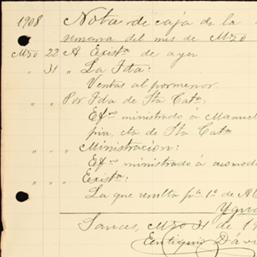 1908 Nota de caja de la
semana del mes de Mzo
Mzo 22 A Exist.ª de ayer
" 31 " La Ida:
Ventas al pormenor.
" " Por Ida de Sta Cat.ª
Ef.vo ministrado a Manuel
pia, cta de Sta Cat.ª
" " " Ministracion:
Ef.vo ministrado á acomoda
" " " Exist.ª:
La que resulta p.ª 1º de A
Lances, Mzo 31 de 19
Dáv